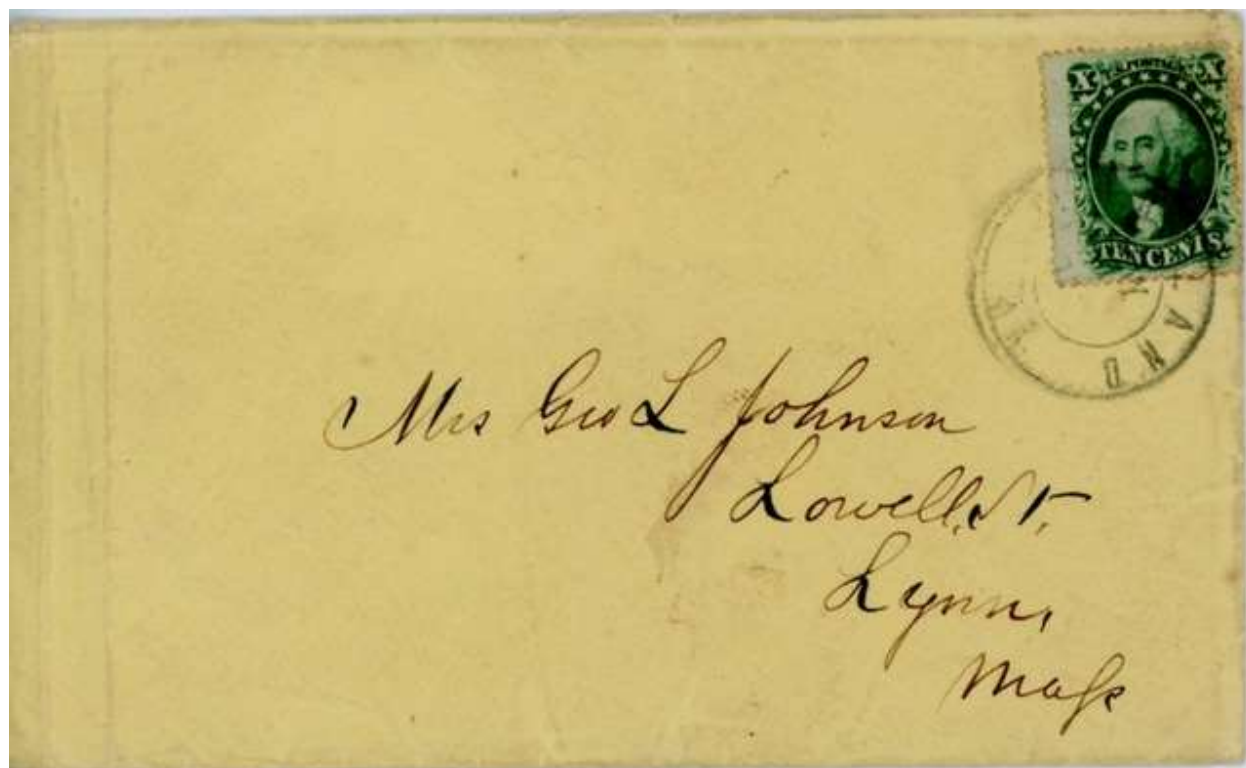 U.S. POSTAGE
X X
TEN CENTS
Mrs Geo L Johnson
Lowell. St.
Lynn,
Mass